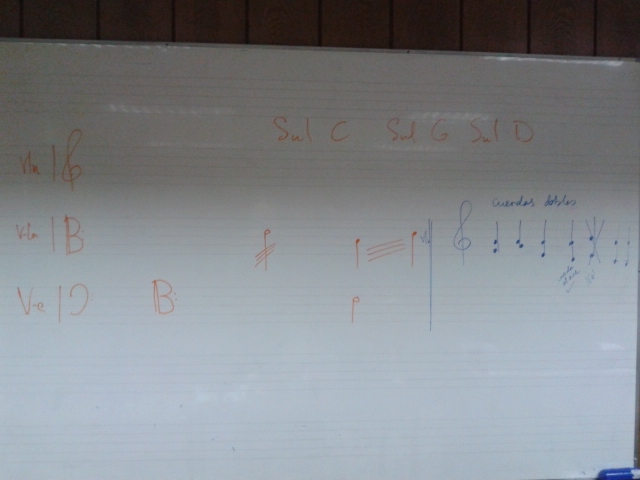 Sul C Sul G Sul D
Vln
Vla
cuerdas dobles
Vc